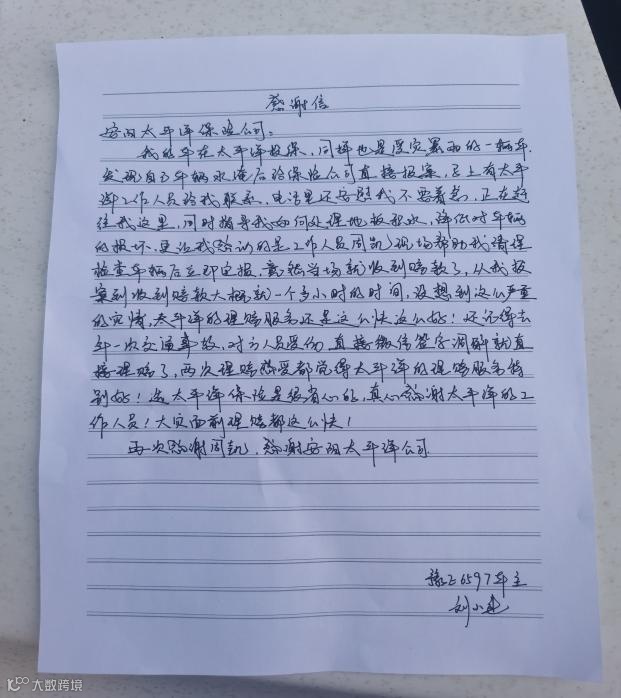 感谢信
安阳太平洋保险公司：
我的车在太平洋投保，同样也是受灾暴雨的一辆车，
发现自己车辆水淹后给保险公司直接报案，马上有太平
洋工作人员给我联系，电话里还安慰我不要着急，正在赶
往我这里，同时指导我如何处理地板积水，降低对车辆
的损坏，更让我感动的是工作人员周凯现场帮助我清理
检查车辆后立即定损，竟然当场就收到赔款了，从我报
案到收到赔款大概就一个多小时的时间，没想到这么严重
的灾情，太平洋的理赔服务还是这么快这么好！还记得去
年一次交通事故，对方人员受伤，直接微信签字调解就直
接理赔了，两次理赔感受都觉得太平洋的理赔服务特
别好！选太平洋保险是很省心的，真心感谢太平洋的工
作人员！大灾面前理赔都这么快！
再一次感谢周凯，感谢安阳太平洋公司
6597车主
刘小
大数跨境